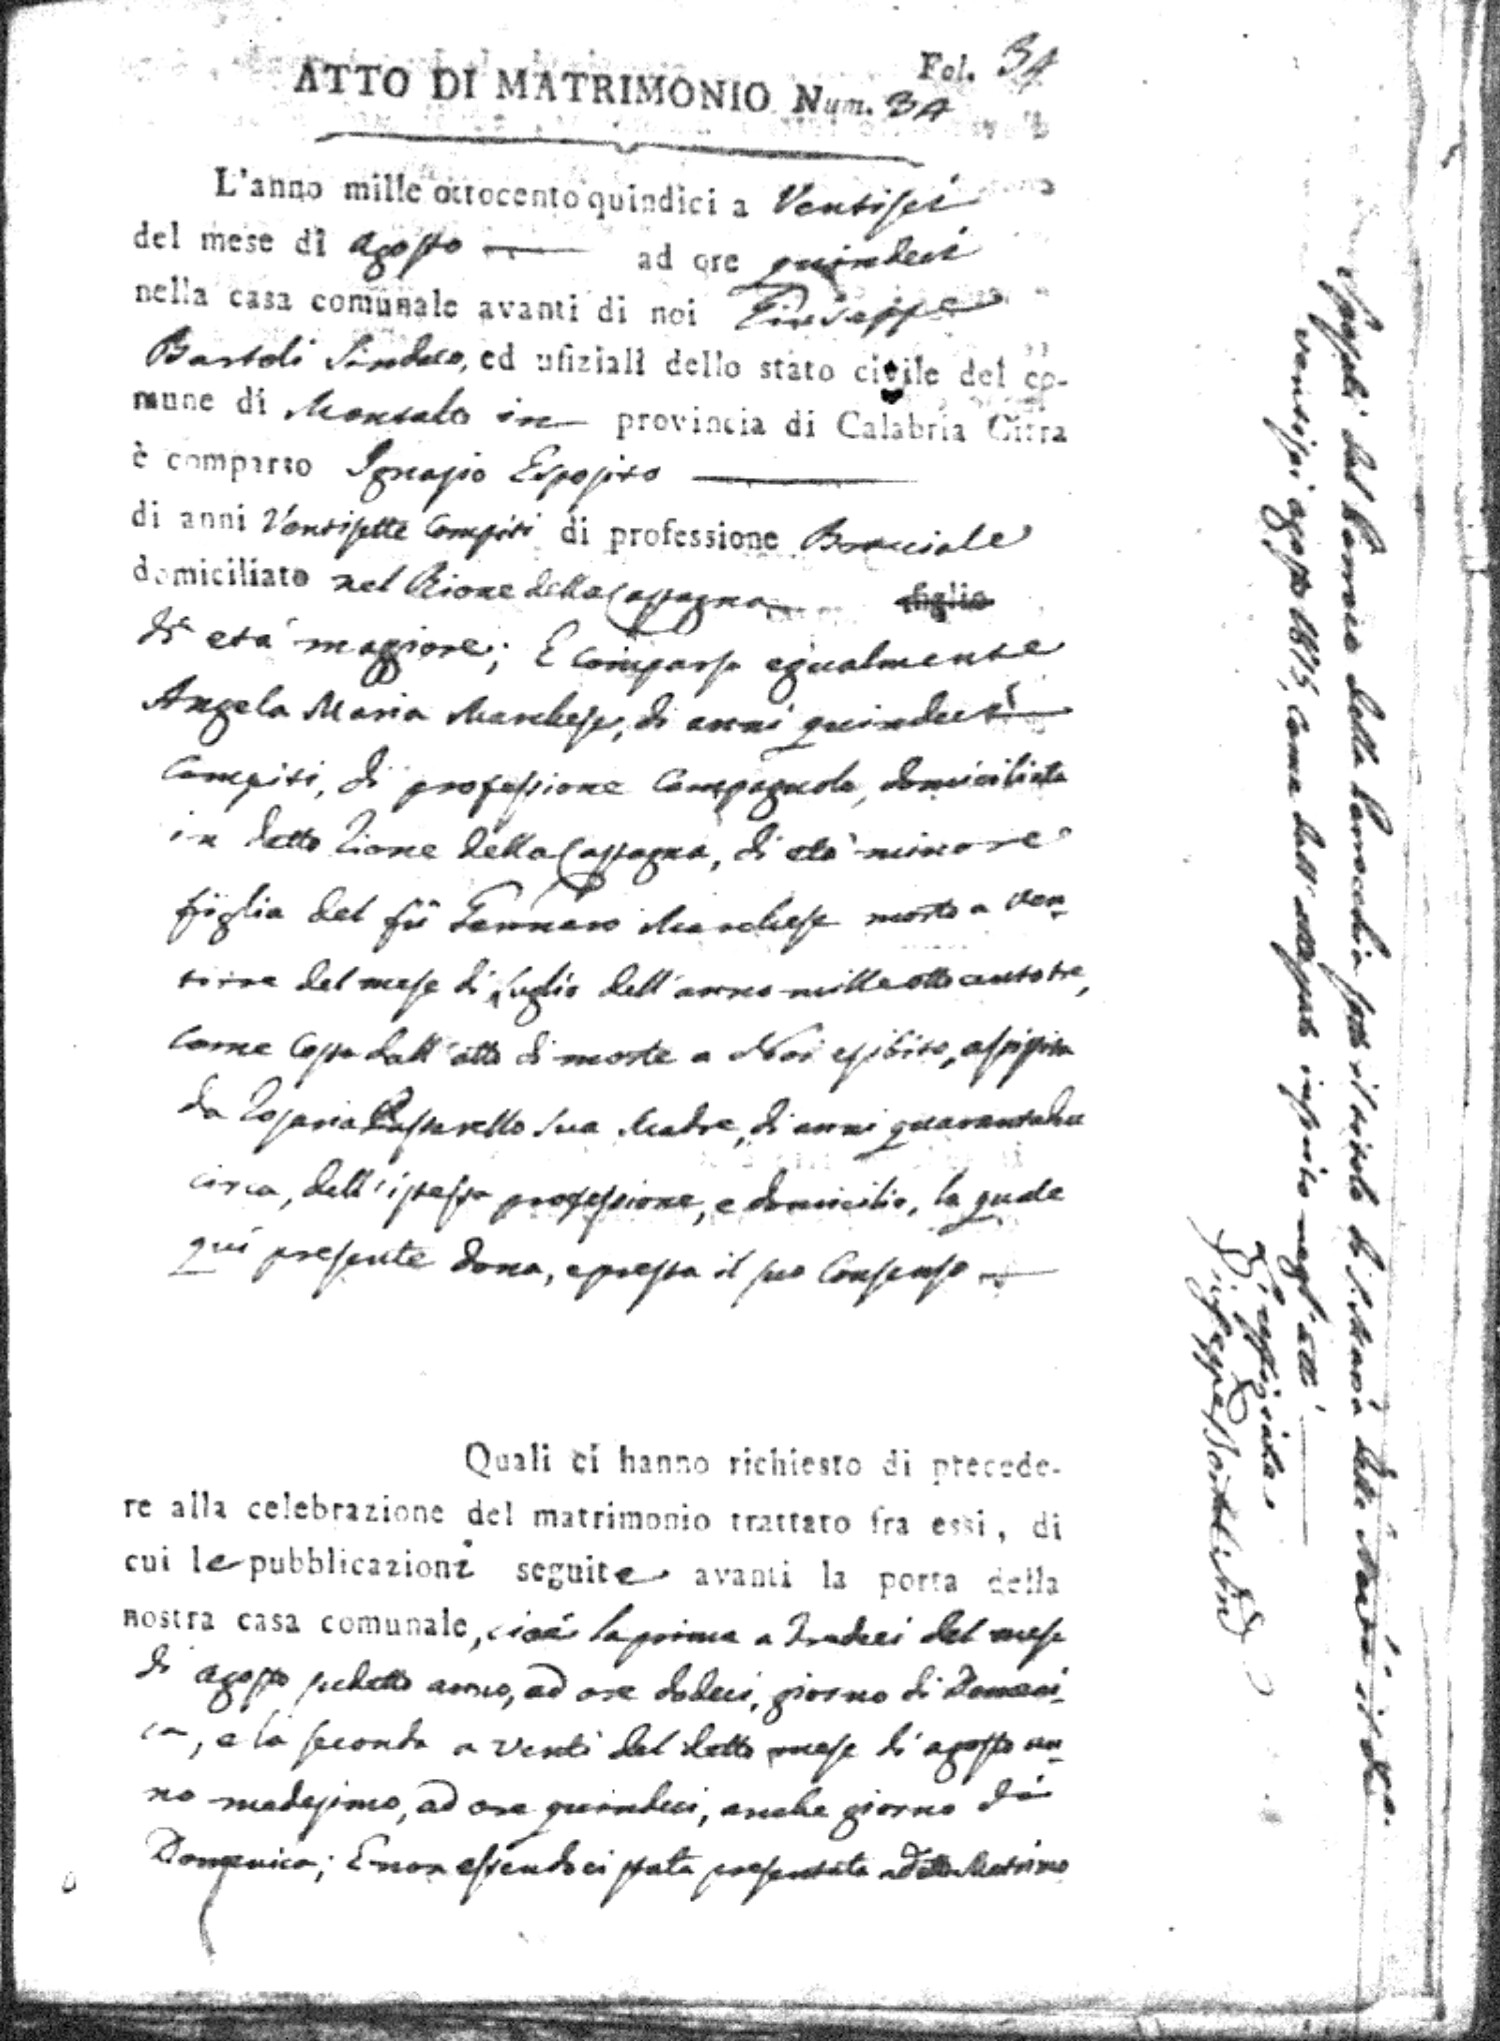 Fol. 34
ATTO DI MATRIMONIO Num. 34
L'anno mille ottocento quindici a Ventisei
del mese di agosto ad ore quindeci
nella casa comunale avanti di noi Giuseppe
Bartoli Sindaco, ed ufiziali dello stato civile del co-
mune di Montalto in provincia di Calabria Citra
è comparso Ignazio Esposito
di anni Ventisette compiti di professione Bracciale
domiciliato nel Rione della Castagna figlio
di età maggiore; E comparsa egualmente
Angela Maria Marchese, di anni quindeci
compiti, di professione Campagnola, domiciliata
in detto Rione della Castagna, di età minore
figlia del fù Gennaro Marchese morto a ven-
titrè del mese di Luglio dell'anno mille otto cento tre,
come costa dall'atto di morte a Noi esibito, assistita
da Rosaria sua Madre, di anni quarantadue
circa, dell'istessa professione, e domicilio, la quale
quì presente dona, e presta il suo consenso
Quali ci hanno richiesto di precede-
re alla celebrazione del matrimonio trattato fra essi, di
cui le pubblicazioni seguite avanti la porta della
nostra casa comunale, cioè la prima a tredeci del mese
di agosto sudetto anno, ad ore dodeci, giorno di Domeni-
ca, e la seconda a venti del detto mese di agosto an-
no medesimo, ad ore quindeci, anche giorno di
Domenica; E non essendoci stata presentata a detto Matrimo
Sposati dal Parroco della Parrocchia sotto il titolo di S. Maria della il dì
ventisei agosto 1815, come dall' inserito negl'atti
L'uffiziale
Giuseppe Bartoli Sind.